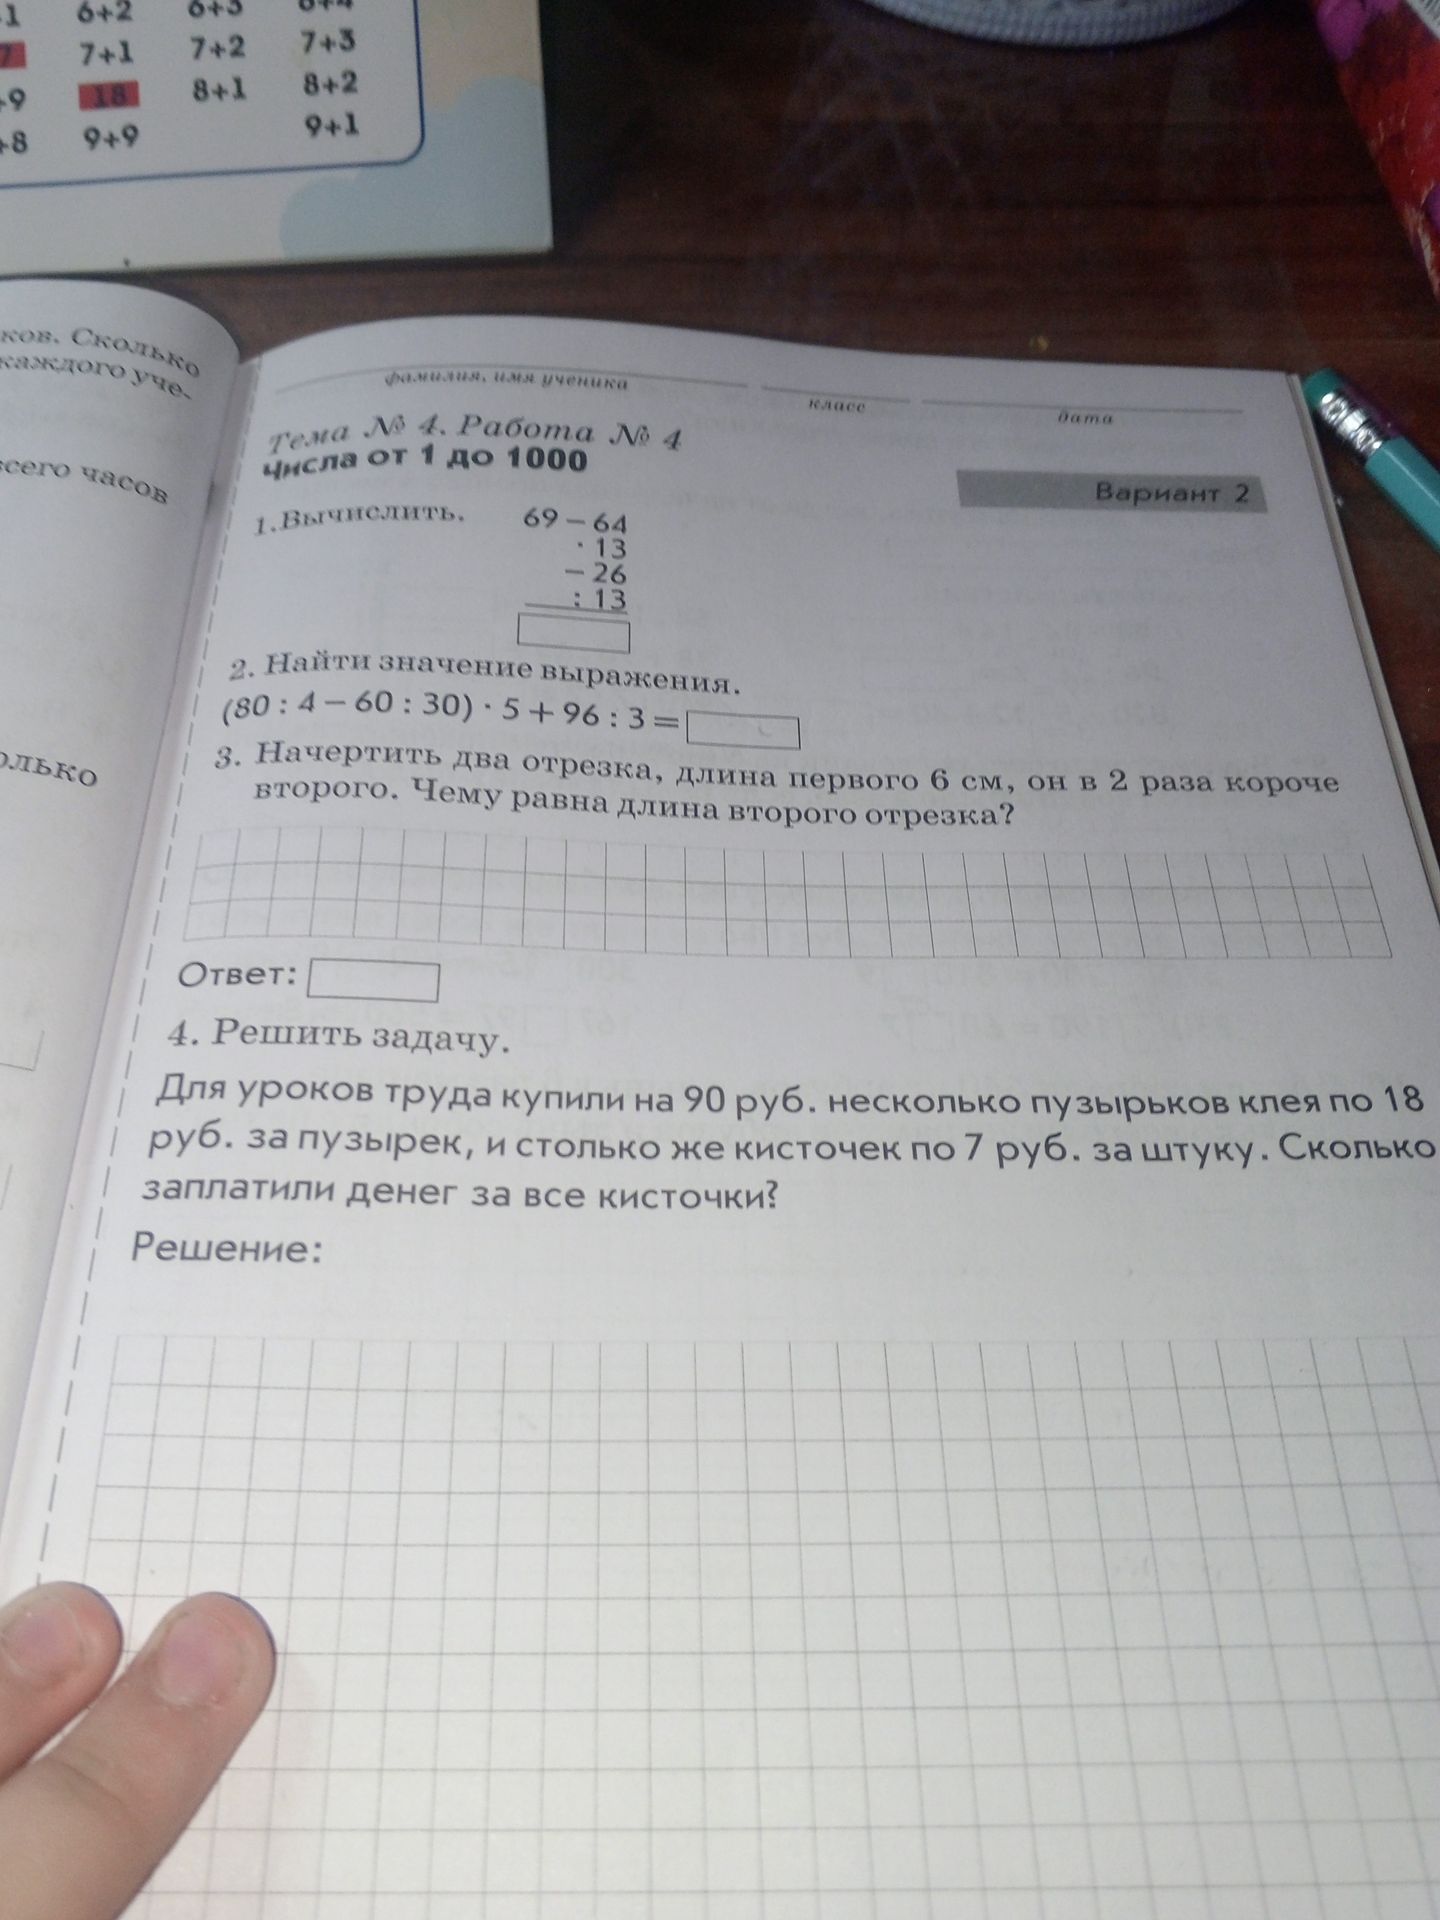 6+2 6+3
7 7+1 7+2 7+3
+9 18 8+1 8+2
+8 9+9 9+1
ков. Сколько
каждого уче-
всего часов
олько
фамилия, имя ученика класс дата
Тема № 4. Работа № 4
Числа от 1 до 1000
Вариант 2
1. Вычислить. 69 – 64
· 13
– 26
: 13
2. Найти значение выражения.
(80 : 4 – 60 : 30) · 5 + 96 : 3 =
3. Начертить два отрезка, длина первого 6 см, он в 2 раза короче
второго. Чему равна длина второго отрезка?
Ответ:
4. Решить задачу.
Для уроков труда купили на 90 руб. несколько пузырьков клея по 18
руб. за пузырек, и столько же кисточек по 7 руб. за штуку. Сколько
заплатили денег за все кисточки?
Решение: